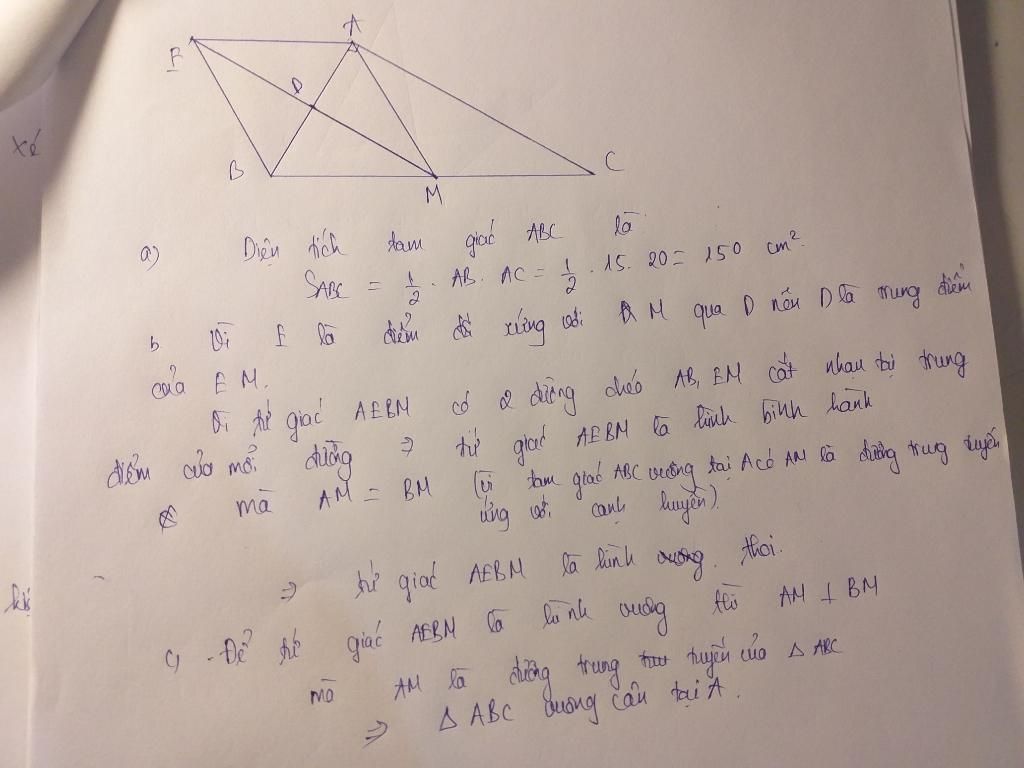 A
E
D
B
M
C
a) Diện tích tam giác ABC là
S_ABC = 1/2 . AB. AC = 1/2 . 15. 20 = 150 cm².
b Vì E là điểm đối xứng với M qua D nên D là trung điểm
của EM.
Vì tứ giác AEBM có 2 đường chéo AB, EM cắt nhau tại trung
điểm của mỗi đường ⇒ tứ giác AEBM là hình bình hành
mà AM = BM (vì tam giác ABC vuông tại A có AM là đường trung tuyến
ứng với cạnh huyền).
⇒ tứ giác AEBM là hình vuông. thoi.
c) - Để tứ giác AEBM là hình vuông thì AM ⊥ BM
mà AM là đường trung tuyến của △ ABC
⇒ △ ABC vuông cân tại A.